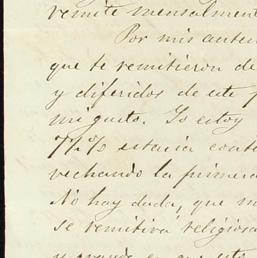 remite mensualment
Por mis anter
que te remitieron de
y diferidos de este
mi gusto. Yo estoy
77% estaria conte
vechando la primera
No hay duda, que m
se remitirá religiosa